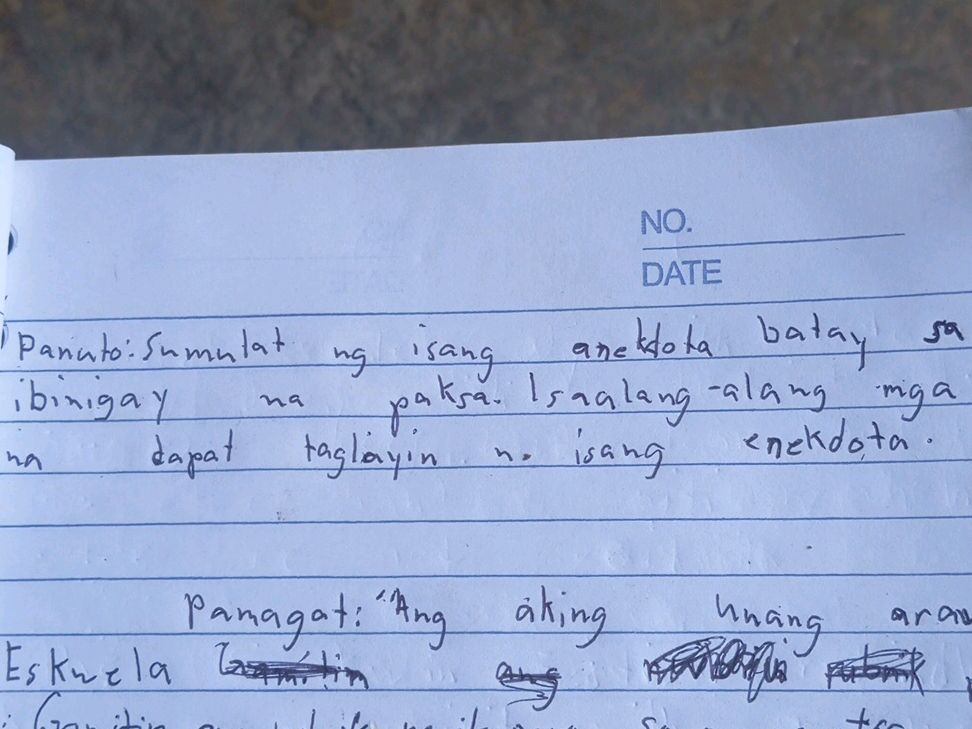 NO.
DATE
Panuto: Sumulat ng isang anekdota batay sa
ibinigay na paksa. Isaalang-alang mga
na dapat taglayin n. isang enekdota.
Pamagat: "Ang aking unang araw
Eskwela